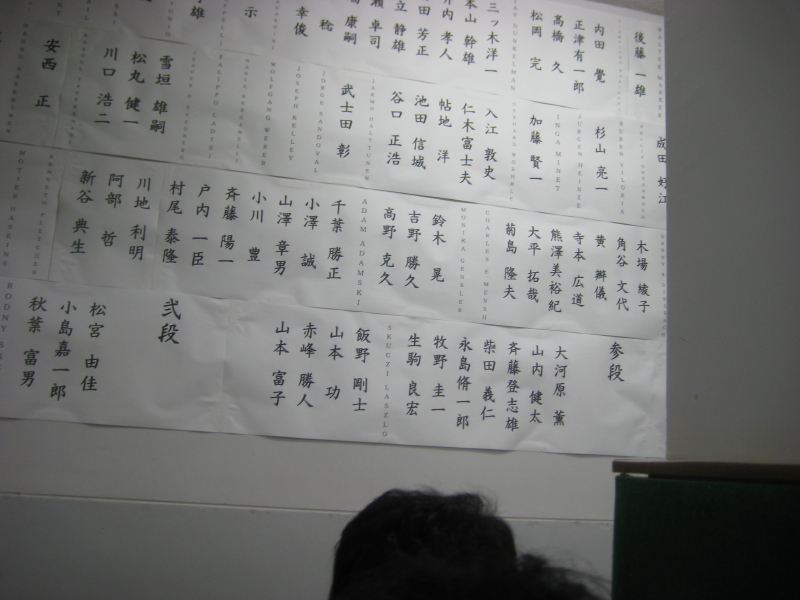 後藤 一雄
内田 覺
正津有一郎
高橋 久
松岡 完
三ッ木洋一
本山 幹雄
竹内 孝人
田 芳正
立 静雄
瀬 卓司
康嗣
稔
幸俊
示
雄
安西 正
WALTER
成田 好江
RUBEN VILORIA
杉山 亮一
JUERGEN HEINZE
INGA MINET
加藤 賢一
入江 敦史
仁木富士夫
帖地 洋
池田 信城
谷口 正浩
JARMO HALTTUNEN
武士田 彰
JORGE SANDOVAL
JOSEPH KELLEY
WOLFGANG WEBER
FILIPPO LADISI
雪垣 雄嗣
松丸 健一
川口 浩二
木場 綾子
角谷 文代
黄 辯儀
寺本 広道
熊澤美裕紀
大平 拓哉
菊島 隆夫
CHARLES E MENSH
MONIKA GENSLER
鈴木 晃
吉野 勝久
高野 克久
ADAM ADAMSKI
千葉 勝正
小澤 誠
山澤 章男
小川 豊
斉藤 陽一
戸内 一臣
村尾 泰隆
川地 利明
阿部 哲
新谷 典生
KENNETH FLETCHER
参段
大河原 薫
山内 健太
斉藤登志雄
柴田 義仁
永島脩一郎
牧野 圭一
生駒 良宏
SKUCZI LASZLO
飯野 剛士
山本 功
赤峰 勝人
山本 富子
弐段
松宮 由佳
小島嘉一郎
秋葉 富男
RODNY